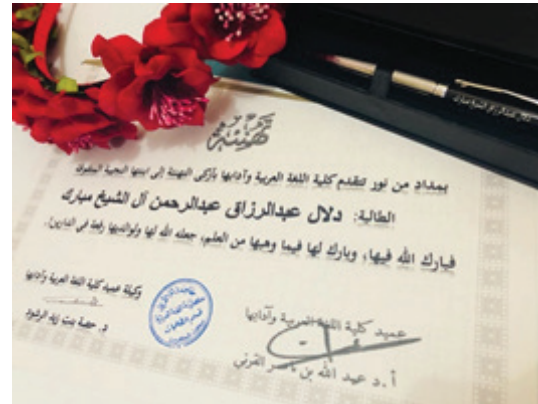 تهنئة
بمداد من نور تتقدم كلية اللغة العربية وآدابها بأزكى التهنئة إلى ابنتها النجيبة المتفوقة
الطالبة: دلال عبدالرزاق عبدالرحمن آل الشيخ مبارك
فبارك الله فيها، وبارك لها فيما وهبها من العلم، جعله الله لها ولوالديها رفعة في الدارين.
وكيلة عميد كلية اللغة العربية وآدابها
د. حصة بنت زيد الرشود
عميد كلية اللغة العربية وآدابها
أ. د عبد الله بن ناصر القرني